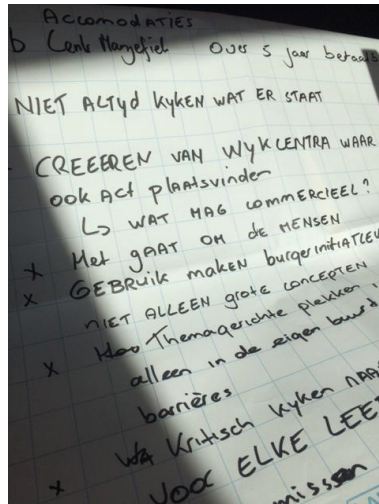 ACCOMODATIES
Over 5 jaar betaalb
NIET ALTyd kyken WAT ER STAAT
CREEEREN VAN WYKCENTRA WAAR
OOK ACT plaatsvinden
↳ WAT MAG COMMERCIEEL?
x Het GAAT OM DE MENSEN
x GEBRuik MAKEN burgerinitiATiev
NIET ALLEEN grote CONCEPTEN
x Themagerichte plekken
alleen in de eigen buurt
barrières
Kritisch kyken NAA
x VOOR ELKE LEEF
missen